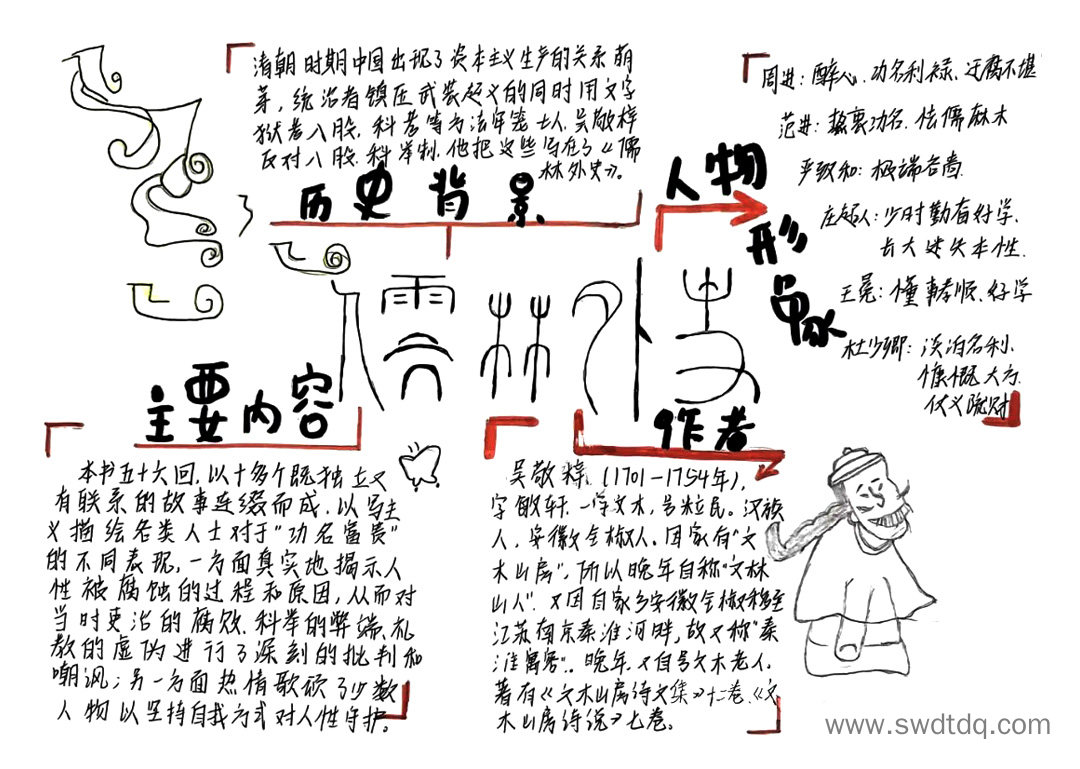 清朝时期中国出现了资本主义生产的关系萌
芽，统治者镇压武装起义的同时用文字
狱考八股、科考等方法牢笼士人，吴敬梓
反对八股、科举制，他把这些写在了《儒
林外史》。
历史背景
人物形象
周进：醉心、功名利禄、迂腐不堪
范进：热衷功名、怯懦麻木
严致和：极端吝啬
匡超人：少时勤奋好学、
长大迷失本性、
王冕：懂事孝顺、好学
杜少卿：淡泊名利、
慷慨大方、
仗义疏财
儒林外史
主要内容
本书五十六回，以十多个既独立又
有联系的故事连缀而成，以写主
义描绘各类人士对于“功名富贵”
的不同表现，一方面真实地揭示人
性被腐蚀的过程和原因，从而对
当时吏治的腐败、科举的弊端、礼
教的虚伪进行了深刻的批判和
嘲讽；另一方面热情歌颂了少数
人物以坚持自我方式对人性守护。
作者
吴敬梓，（1701－1754年），
字敏轩，一字文木，号粒民。汉族
人，安徽全椒人。因家有“文
木山房”，所以晚年自称“文林
山人”，又因自家乡安徽全椒移至
江苏南京秦淮河畔，故又称“秦
淮寓客”。晚年又自号文木老人，
著有《文木山房诗文集》十二卷、《文
木山房诗说》七卷。
www.swdtdq.com